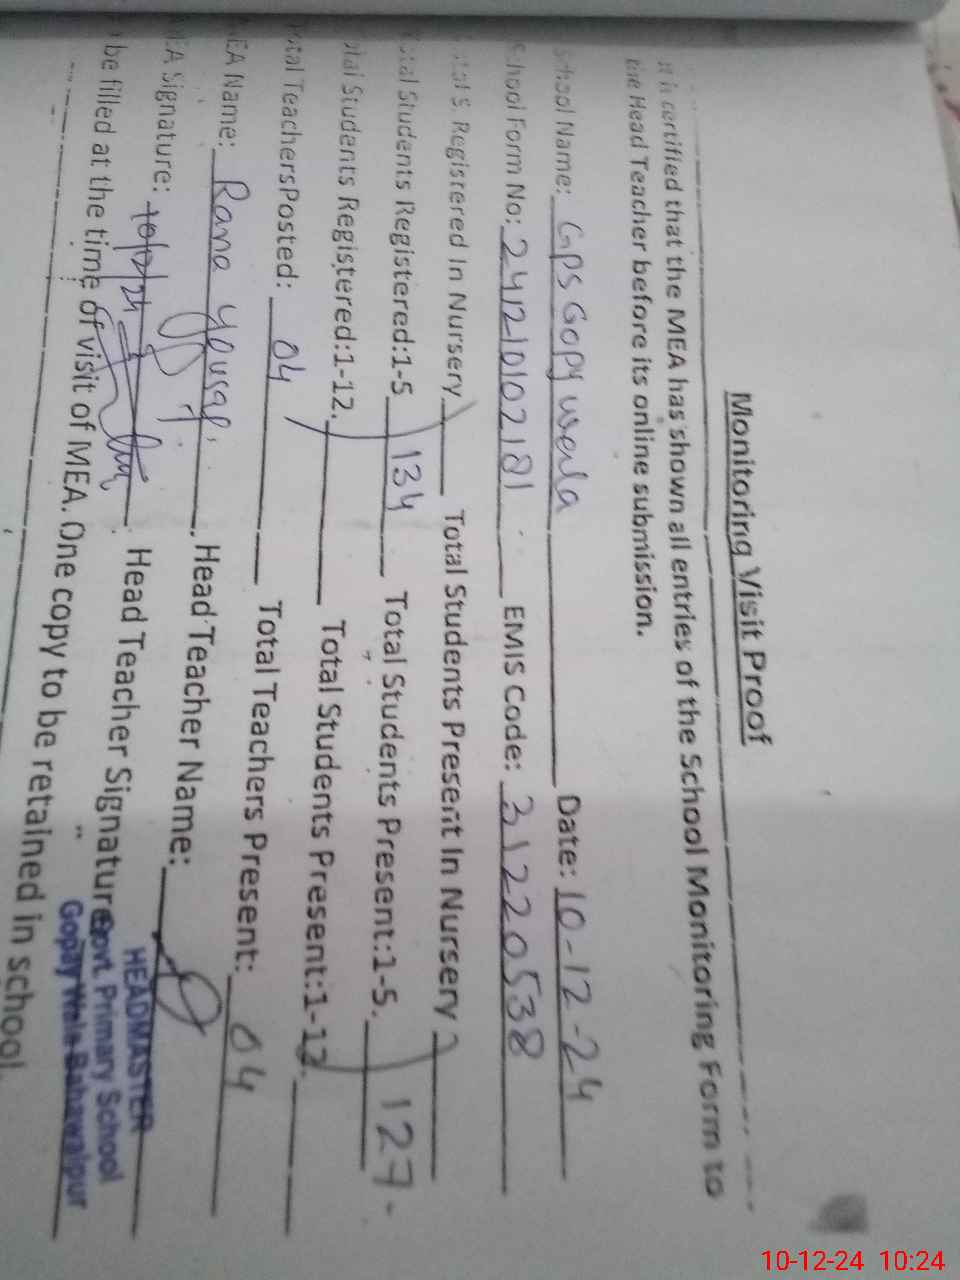 Monitoring Visit Proof
It is certified that the MEA has shown all entries of the School Monitoring Form to
the Head Teacher before its online submission.
School Name: GPS Gopy wala Date: 10-12-24
School Form No: 241210102181 EMIS Code: 31220538
Total S Registered In Nursery Total Students Present In Nursery
Total Students Registered:1-5 134 Total Students Present:1-5. 127-
Total Students Registered:1-12. Total Students Present:1-12.
Total TeachersPosted: 04 Total Teachers Present: 04
MEA Name: Rana Yousaf Head Teacher Name:
MEA Signature: 10/12/24 Head Teacher Signature:
be filled at the time of visit of MEA. One copy to be retained in school.
HEADMASTER
Govt. Primary School
Gopay Wala Bahawalpur
10-12-24 10:24